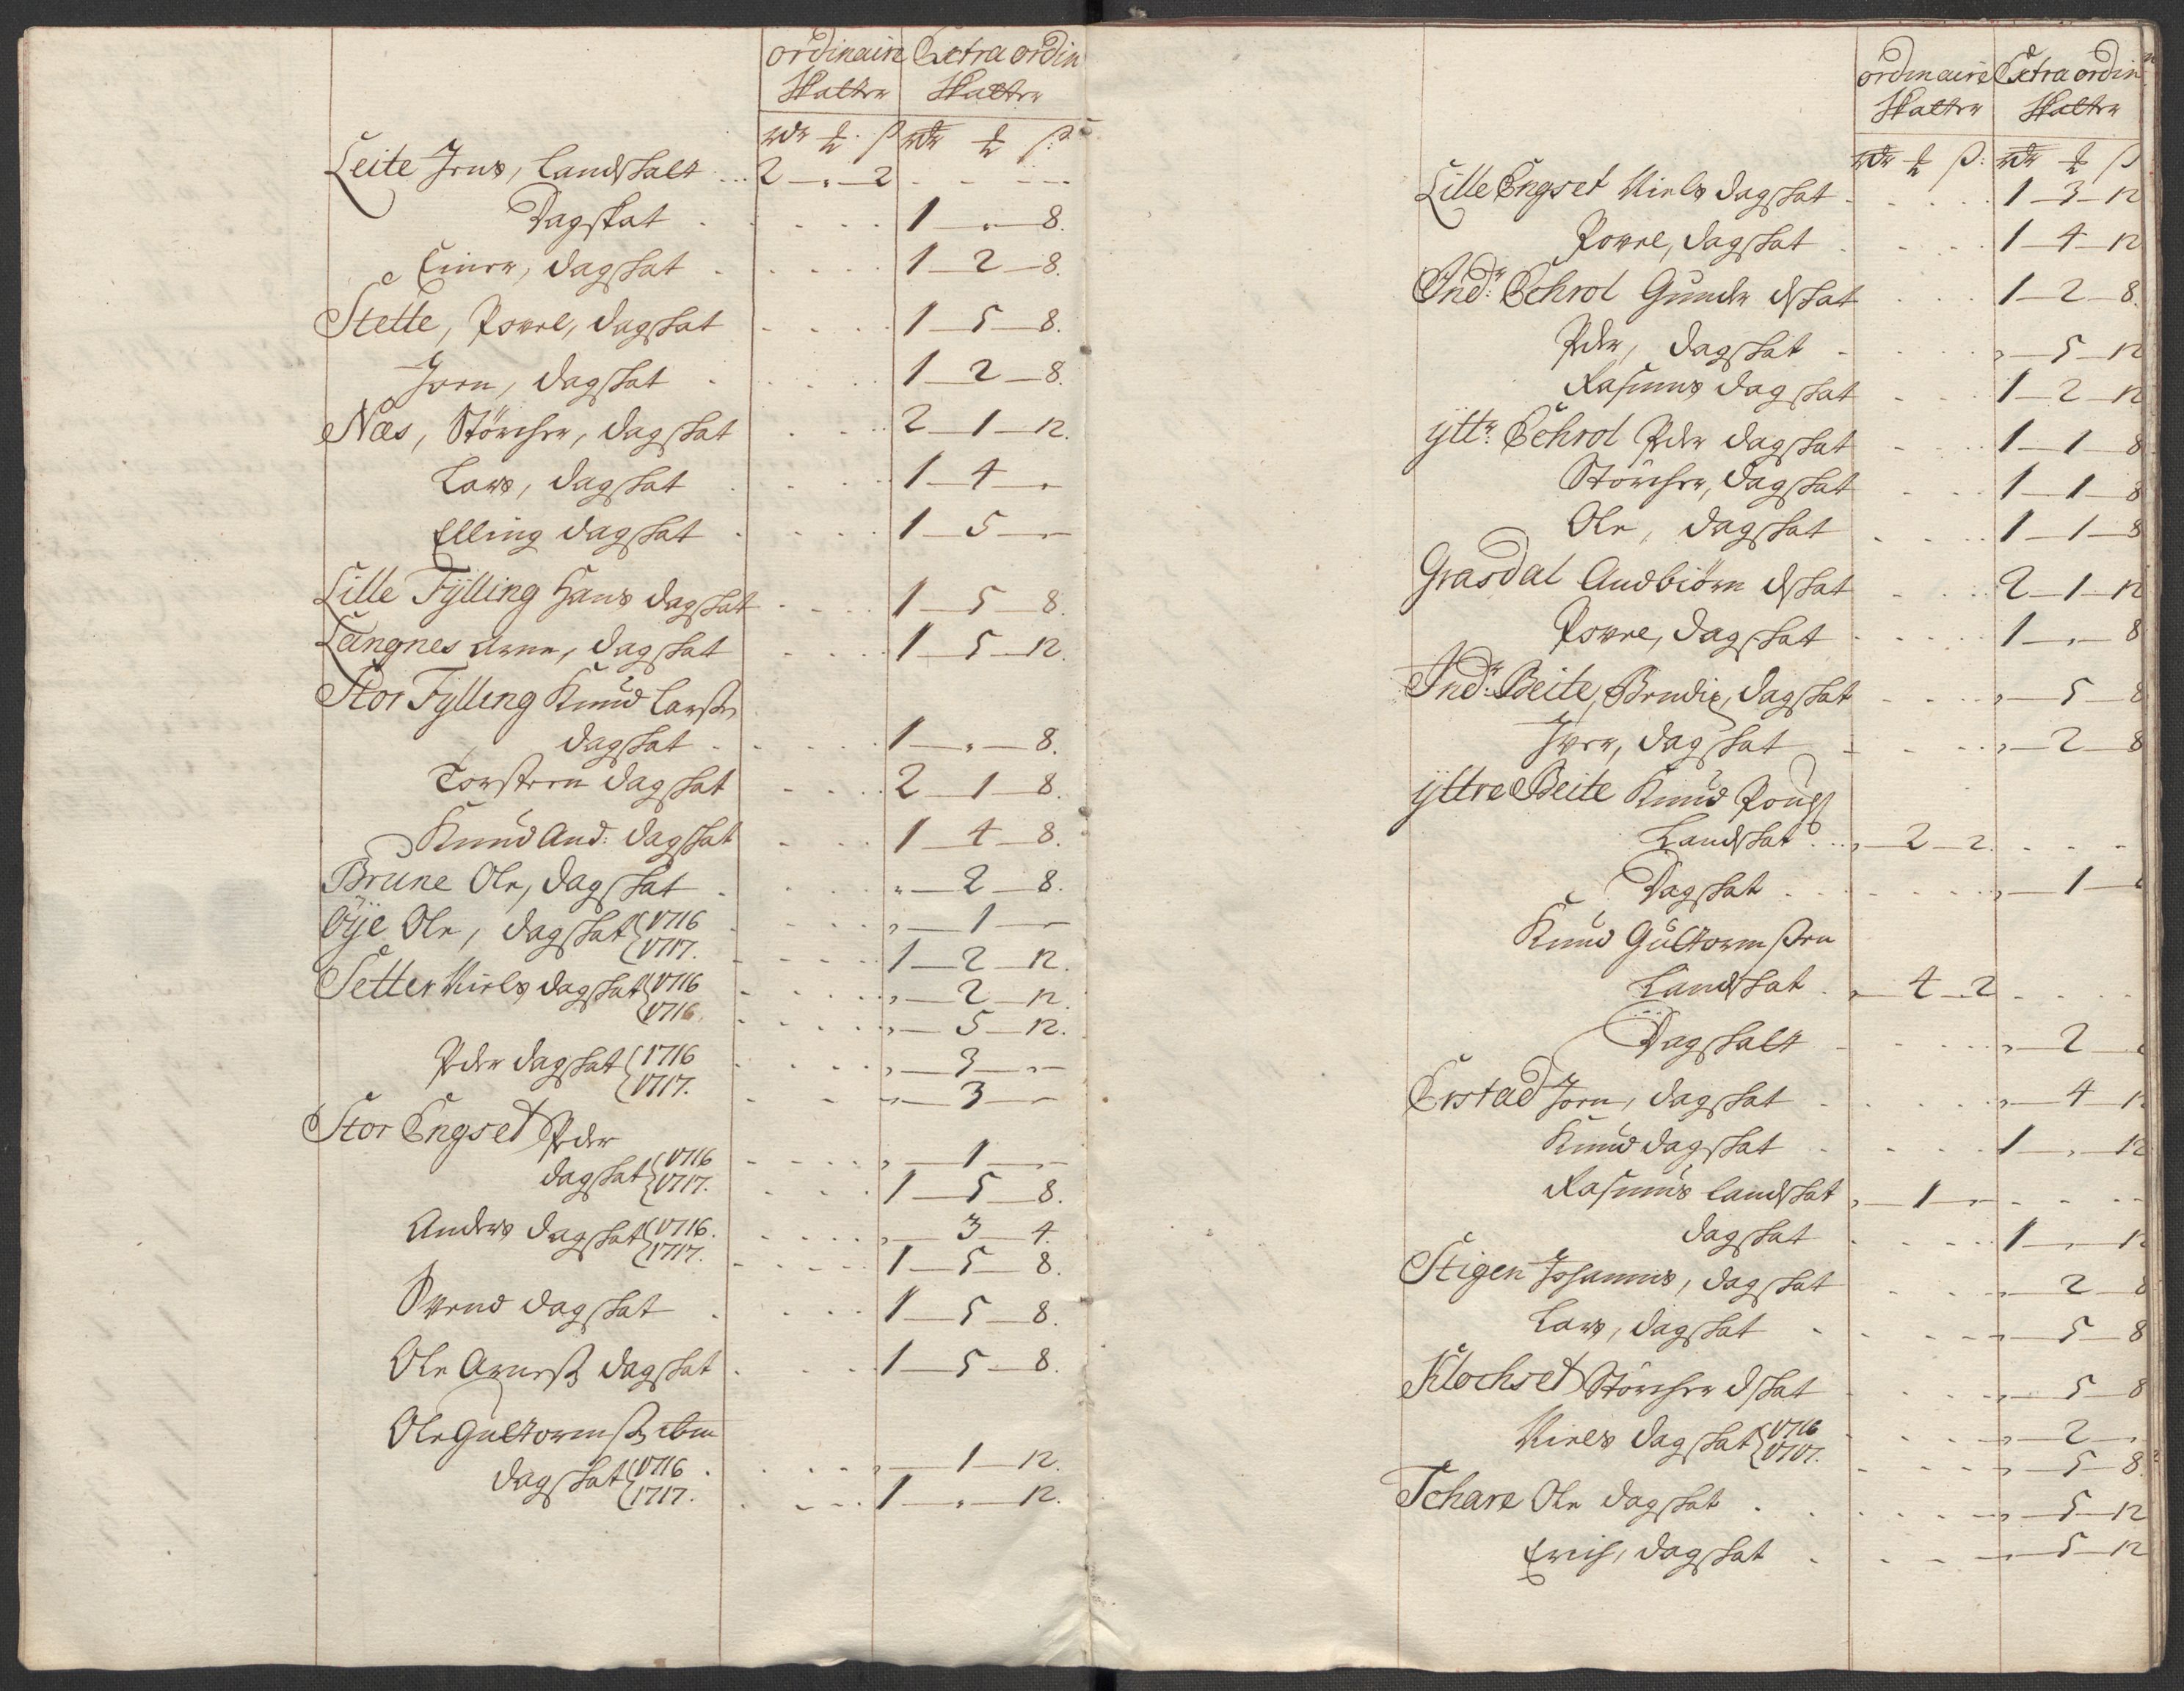 ordinaire Extra ordin
Skatter Skatter
rdr ß rdr ß
Leite Jens, Landskatt 2 - " - 2
Dagskat 1 - " - 8.
Einer, dagskat 1 - 2 - 8.
Stette, Povel, dagskat 1 - 5 - 8.
Jven, dagskat 1 - 2 - 8.
Næs, Störcher, dagskat 2 - 1 - 12.
Lars, dagskat 1 - 4 - "
Elling dagskat 1 - 5 - "
Lille Fÿlling Hans dagskat 1 - 5 - 8.
Langnes Arne, dagskat 1 - 5 - 12.
Stor Fylling Knud Larss
dagskat 1 - " - 8.
Torsteen dagskat 2 - 1 - 8.
Knud And: dagskat 1 - 4 - 8.
Brune Ole, dagskat " - 2 - 8.
Öÿe Ole, dagskat 1716 " - 1 - "
1717. 1 - 2 - 12.
Setter Niels dagskat 1716 " - 2 - 12.
1716. " - 5 - 12.
Peder dagskat 1716 " - 3 - "
1717. " - 3 - "
Stor Engset Peder
dagskat 1716 " - 1 - "
1717. 1 - 5 - 8.
Anders dagskat 1716. " - 3 - 4.
1717. 1 - 5 - 8.
Svend dagskat 1 - 5 - 8.
Ole Arness dagskat 1 - 5 - 8.
Ole Gultormss
dagskat 1716 " - 1 - 12.
1717. 1 - " - 12.
ordinaire Extra ordin
Skatter Skatter
rdr ß: rdr ß
Lille Engset Niels dagskat 1 - 3 - 12
Povel, dagskat 1 - 4 - 12
Indr: Echrol Gunder dskat 1 - 2 - 8.
Peder, dagskat " - 5 - 12
Rasmus dagskat 1 - 2 - 12
ÿttr: Echrol Peder dagskat 1 - 1 - 8
Störcher, dagskat 1 - 1 - 8
Ole, dagskat 1 - 1 - 8
Grasdal Audbiörn dskat 2 - 1 - 12
Povel, dagskat 1 - " - 8
Indr: Beite, Bendix, dagskat " - 5 - 8
Jver, dagskat " - 2 - 8
ÿttre Beite Knud Pouls
Landskat " - 2 - 2.
Dagskat " - 1 -
Knud Gultormssen
Landskat " - 4 - 2
Dagskatt " - 2 -
Erstad Jven, dagskat " - 4 - 12
Knud dagskat 1 - " - 12
Rasmus Landskat " - 1 - "
dagskat 1 - " - 12
Stigen Johannes, dagskat " - 2 - 8
Lars, dagskat " - 5 - 8
Klochset Störcher dskat " - 5 - 8
Niels dagskat 1716 " - 2 - "
1717. " - 5 - 8.
Schare Ole dagskat " - 5 - 12
Erich, dagskat " - 5 - 12